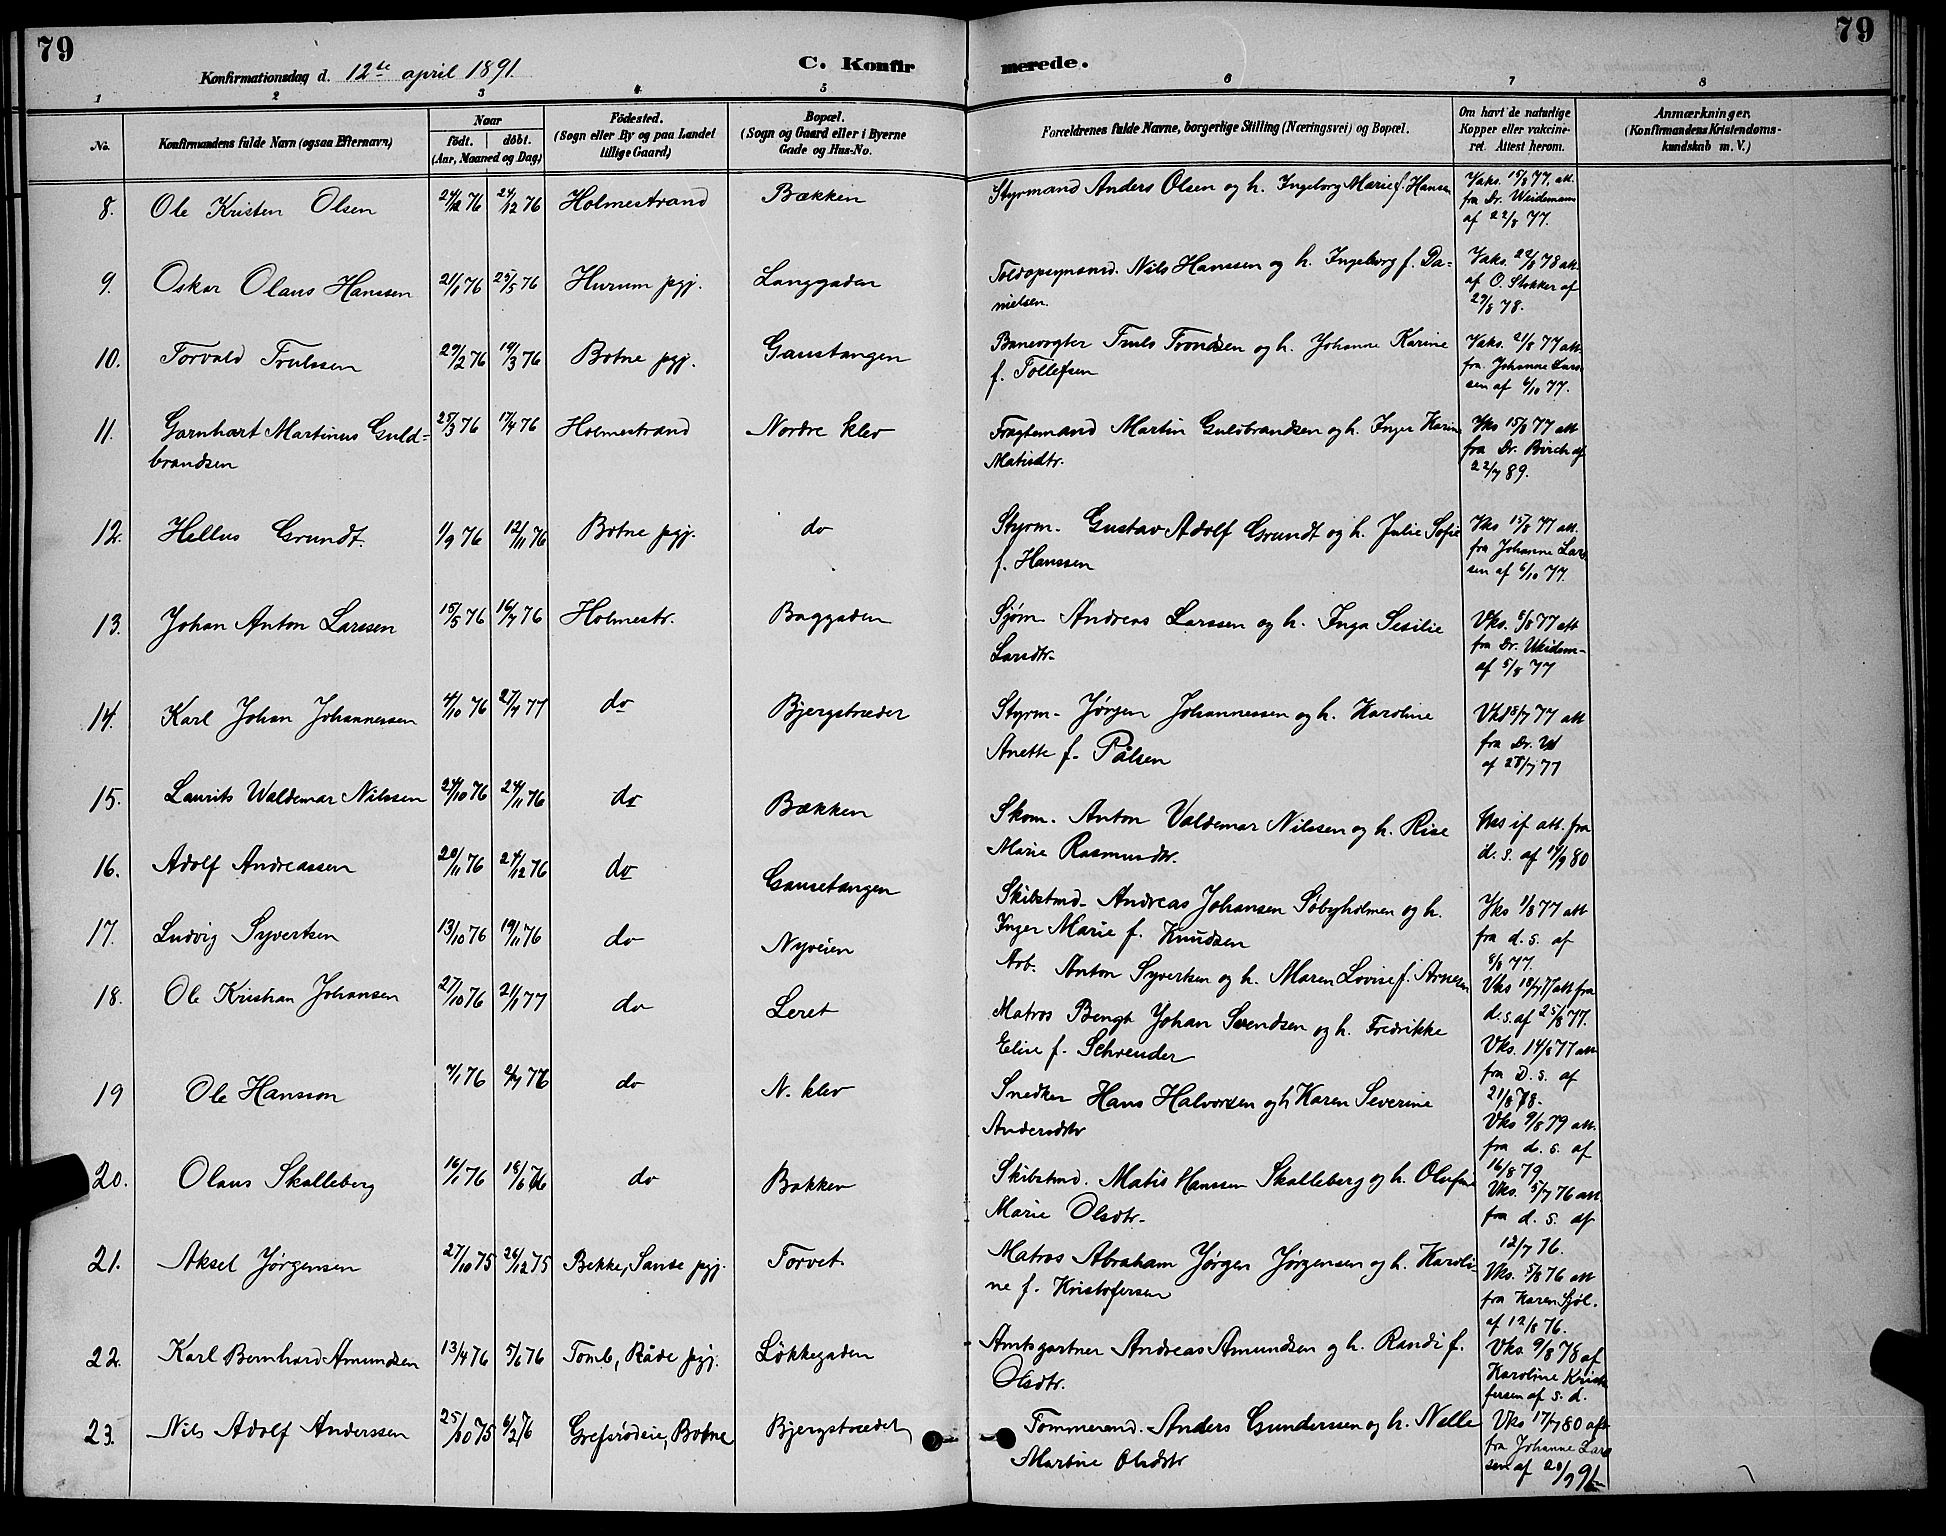 79
79
Konfirmationsdag d. 12te april 1891.
C. Konfir
merede.
1 2 3 4 5 6 7 8
No.
Konfirmandens fulde Navn (ogsaa Efternavn)
Naar
født. døbt.
(Aar, Maaned og Dag)
Fødested.
(Sogn eller By og paa Landet
tillige Gaard)
Bopæl.
(Sogn og Gaard eller i Byerne
Gade og Hus-No.
Forældrenes fulde Navne, borgerlige Stilling (Næringsvei) og Bopæl.
Om havt de naturlige
Kopper eller vakcine-
ret. Attest herom.
Anmærkninger,
(Konfirmandens Kristendoms-
kundskab m. V.)
8. Ole Kristen Olsen 24/12 76 Holmestrand Bækken Styrmand Anders Olsen og h. Ingeborg Marie f. Hansen Vaks. 15/8 77, att.
fra Dr. Weidemann
af 22/8 77.
9. Oskar Olaus Hanssen 21/1 76 25/5 76 Hurum pgj. Langgaden Toldopsynsmd. Nils Hanssen og h. Ingeborg f. Da-
nielsen.
Vaks. 22/8 78 att.
af O. Stokker af
29/8 78.
10. Torvald Trulssen 29/2 76 19/3 76 Botne pgj. Gaustangen Banevogter Truls Trondsen og h. Johanne Karine
f. Tollefsen
Vaks. 2/8 77 att
fra Johanne Lars-
sen af 6/10 77.
11. Garnhart Martinus Guld-
brandsen
25/3 76 17/4 76 Holmestrand Nordre klev Fragtemand Martin Guldbrandsen og h. Inger Karine
Matisdtr.
Vks 15/8 77 att
fra Dr. Birch af
22/7 89.
12. Hellus Grundt. 1/9 76 12/11 76 Botne pgj. do Styrm. Gustav Adolf Grundt og h. Julie Sofie
f. Hanssen
Vks 15/8 77 att.
fra Johanne Lars-
sen af 6/10 77.
13. Johan Anton Larssen 15/5 76 16/7 76 Holmestr. Baggaden Sjøm. Andreas Larssen og h. Inga Sesilie
Larsdtr.
Vks. 6/8 77 att
fra Dr. Weidem-
af 5/8 77
14. Karl Johan Johannessen 4/10 76 27/4 77 do Bjergstrædet Styrm. Jørgen Johannessen og h. Karoline
Anette f. Pålsen
Vks 18/7 77 att
fra Dr. W
af 28/7 77
15. Laurits Waldemar Nilssen 24/10 76 24/11 76 do Bækken Skom. Anton Valdemar Nilssen og h. Rise
Marie Rasmusdtr.
if att. fra
d. s. af 14/9 80
16. Adolf Andreassen 20/11 76 24/12 76 do Gausetangen Skibstmd. Andreas Johansen Søbyholmen og h.
Inger Marie f. Knudsen
Vks 1/8 77 att
fra d. s. af
8/8 77.
17. Ludvig Syvertsen 13/10 76 19/11 76 do Nyveien Arb. Anton Syvertsen og h. Maren Lovise f. Arnesen
Vks 18/7 77 att fra
d. s. af 25/8 77.
18. Ole Kristian Johansen 27/10 76 2/1 77 do Leret Matros Bengt Johan Svendsen og h. Fredrikke
Elise f. Schrender
Vks. 14/8 77 att
fra D. s. af
21/8 78.
19 Ole Hansson 7/1 76 2/7 76 do N. klev Snedker Hans Halvorsen og h Karen Severine
Andersdtr
Vks 9/8 79 att.
fra d. s. af
16/8 79
20. Olaus Skalleberg 16/1 76 18/6 76 do Bakken Skibstmd. Matis Hanssen Skalleberg og h. Olufine
Marie Olsdtr.
Vks. 5/7 76 att
fra d. s. af
12/7 76.
21. Aksel Jørgensen 27/10 75 26/12 75 Bekke, Sande pgj. Torvet Matros Abraham Jørgen Jørgensen og h. Karoli-
ne f. Kristofersen
Vks. 5/8 76 att
fra Karen Sjøl.
af 12/8 76.
22. Karl Bernhard Amundsen 13/4 76 5/6 76 Tomb, Råde pgj. Løkkegaden Amtsgartner Andreas Amundsen og h. Randi f.
Olsdtr.
Vks. 9/8 78 af
Karoline Kristo
fersen af s. d.
23. Nils Adolf Anderssen 25/10 75 6/2 76 Grefsrødeie, Botne Bjergstrædet Tømmermd. Anders Gunderssen og h. Nelle
Martine Olsdtr
Vks 17/7 80 att
fra Johanne Lars
sen af 20/7 91